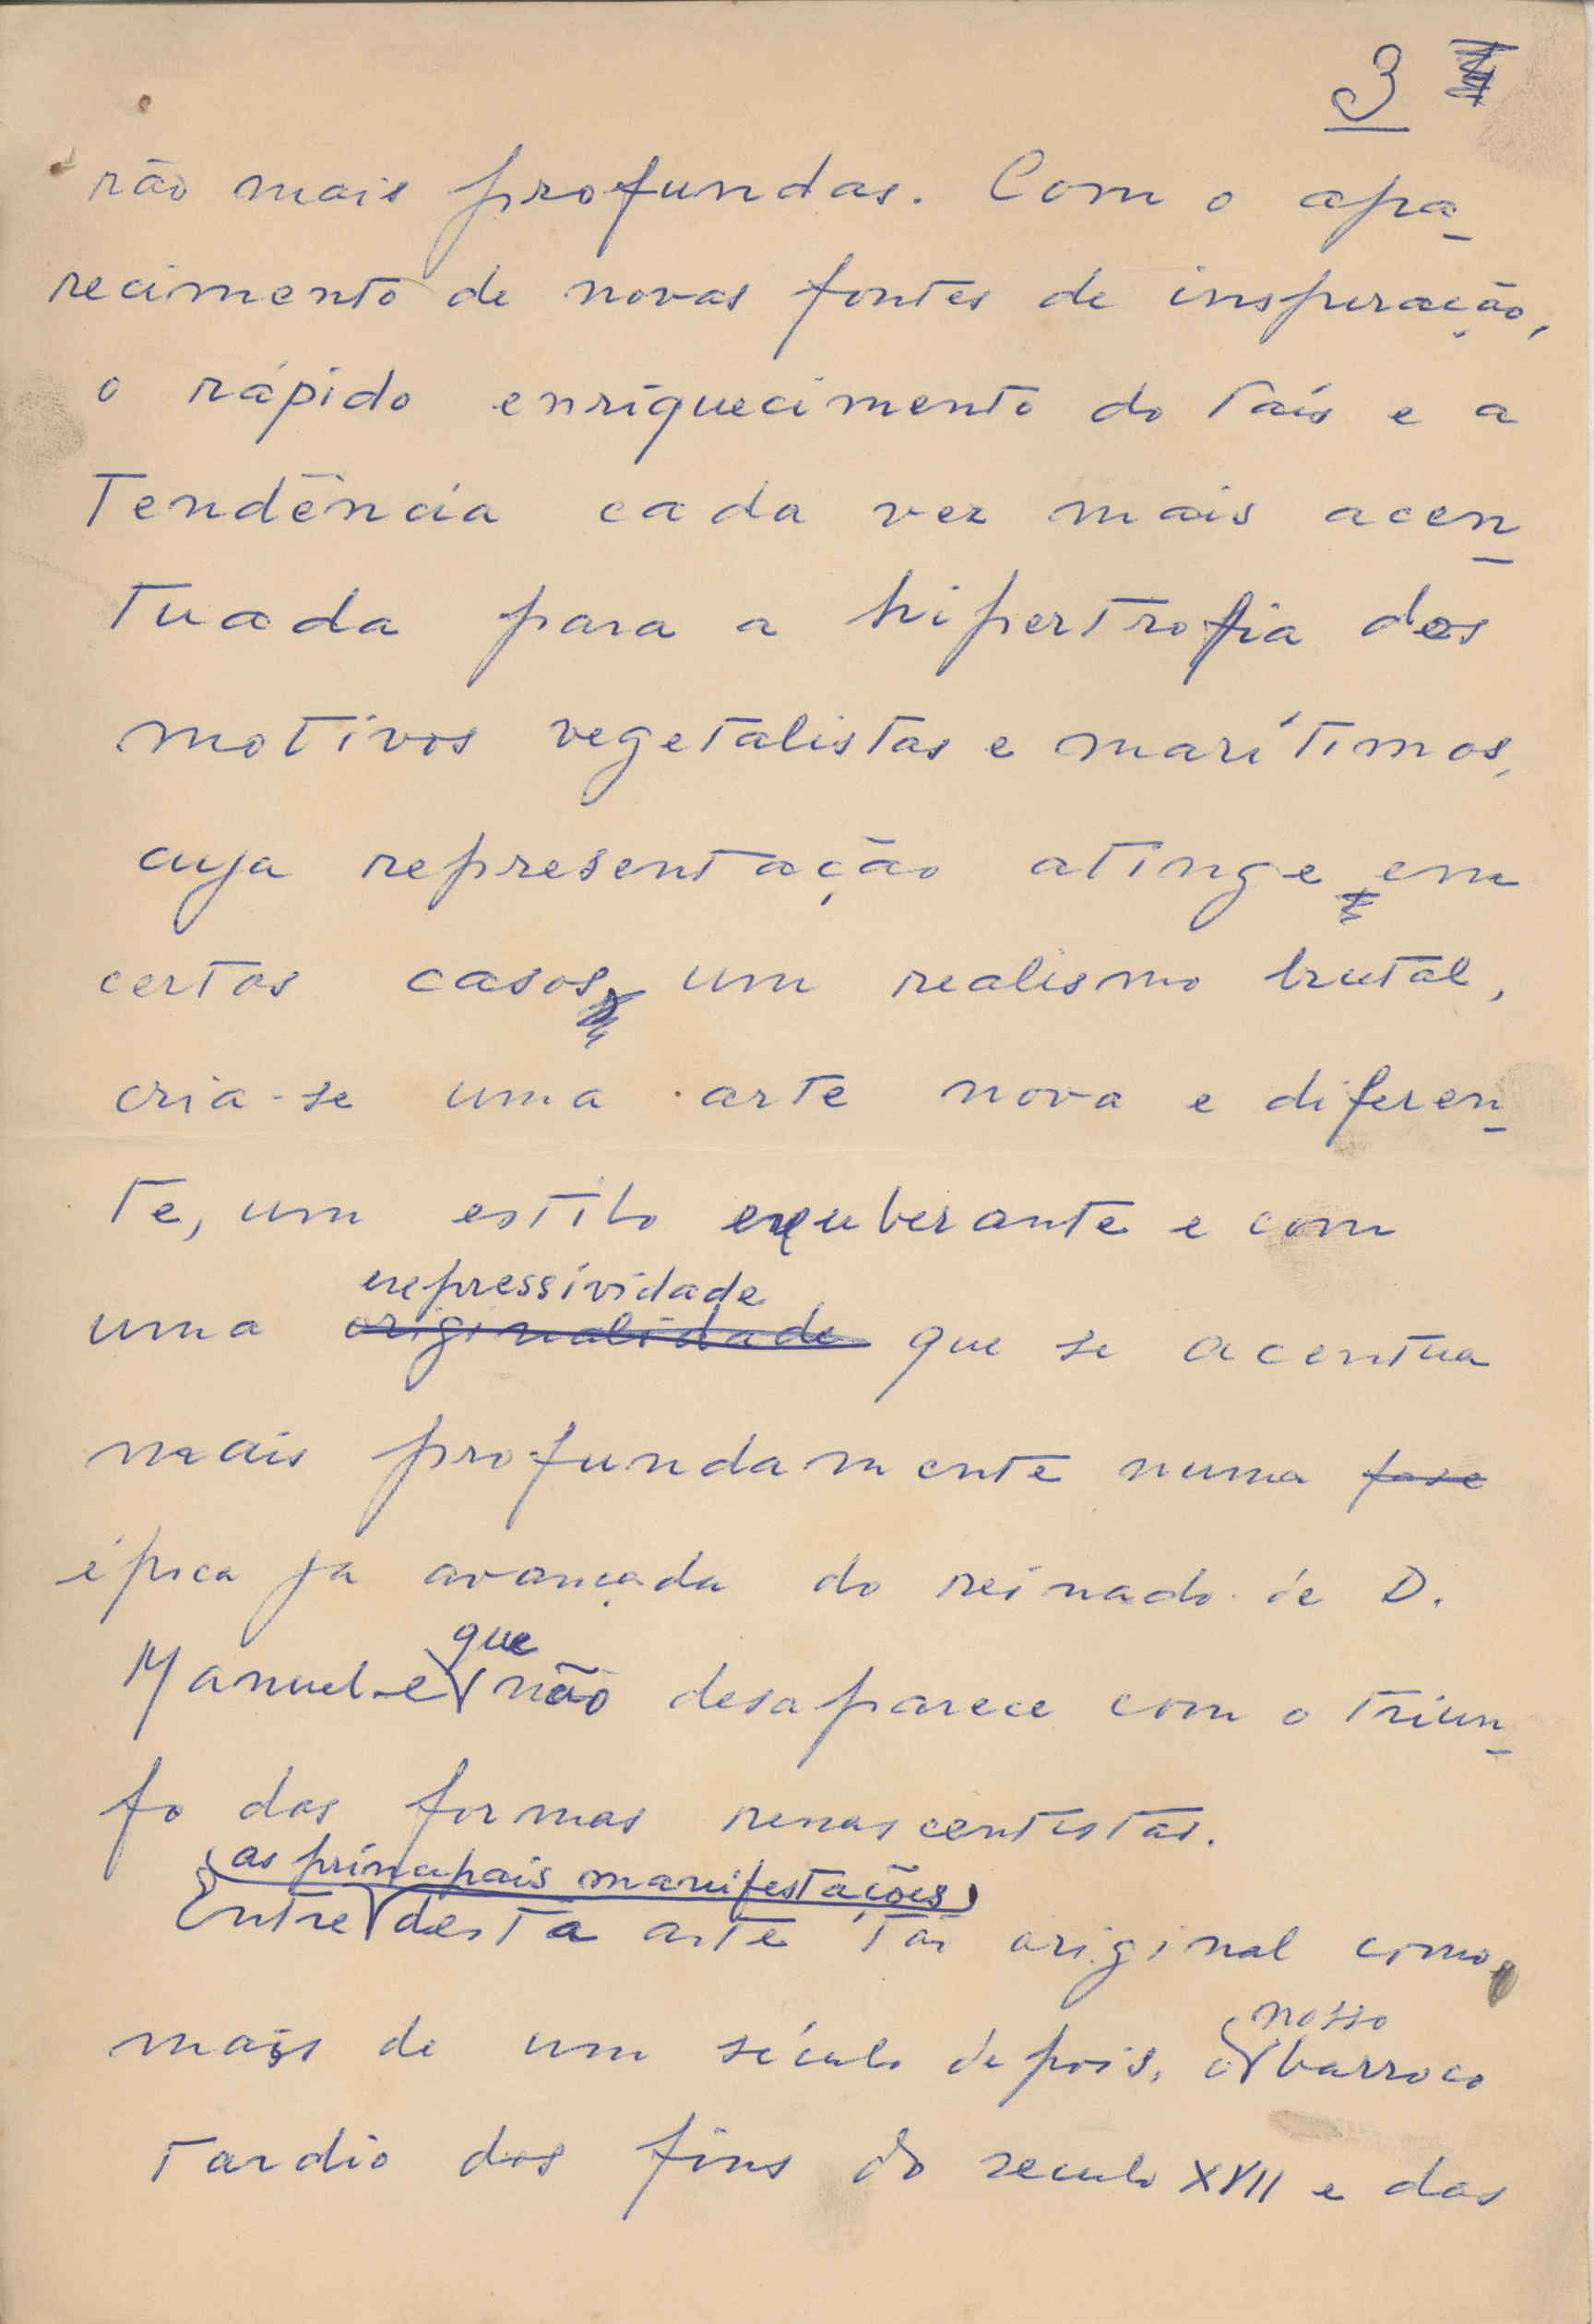 3
rão mais profundas. Com o apa-
recimento de novas fontes de inspiração,
o rápido enriquecimento do País e a
Tendência cada vez mais acen-
tuada para a hipertrofia dos
motivos vegetalistas e marítimos,
cuja representação atinge em
certos casos um realismo brutal,
cria-se uma arte nova e diferen-
te, um estilo exuberante e com
expressividade
uma originalidade que se acentua
mais profundamente numa fase
época já avançada do reinado de D.
que
Manuel e não desaparece com o triun-
fo das formas renascentistas.
as principais manifestações
Entre desta arte tão original como,
nosso
mais de um século depois, o barroco
tardio dos fins do seculo XVII e das